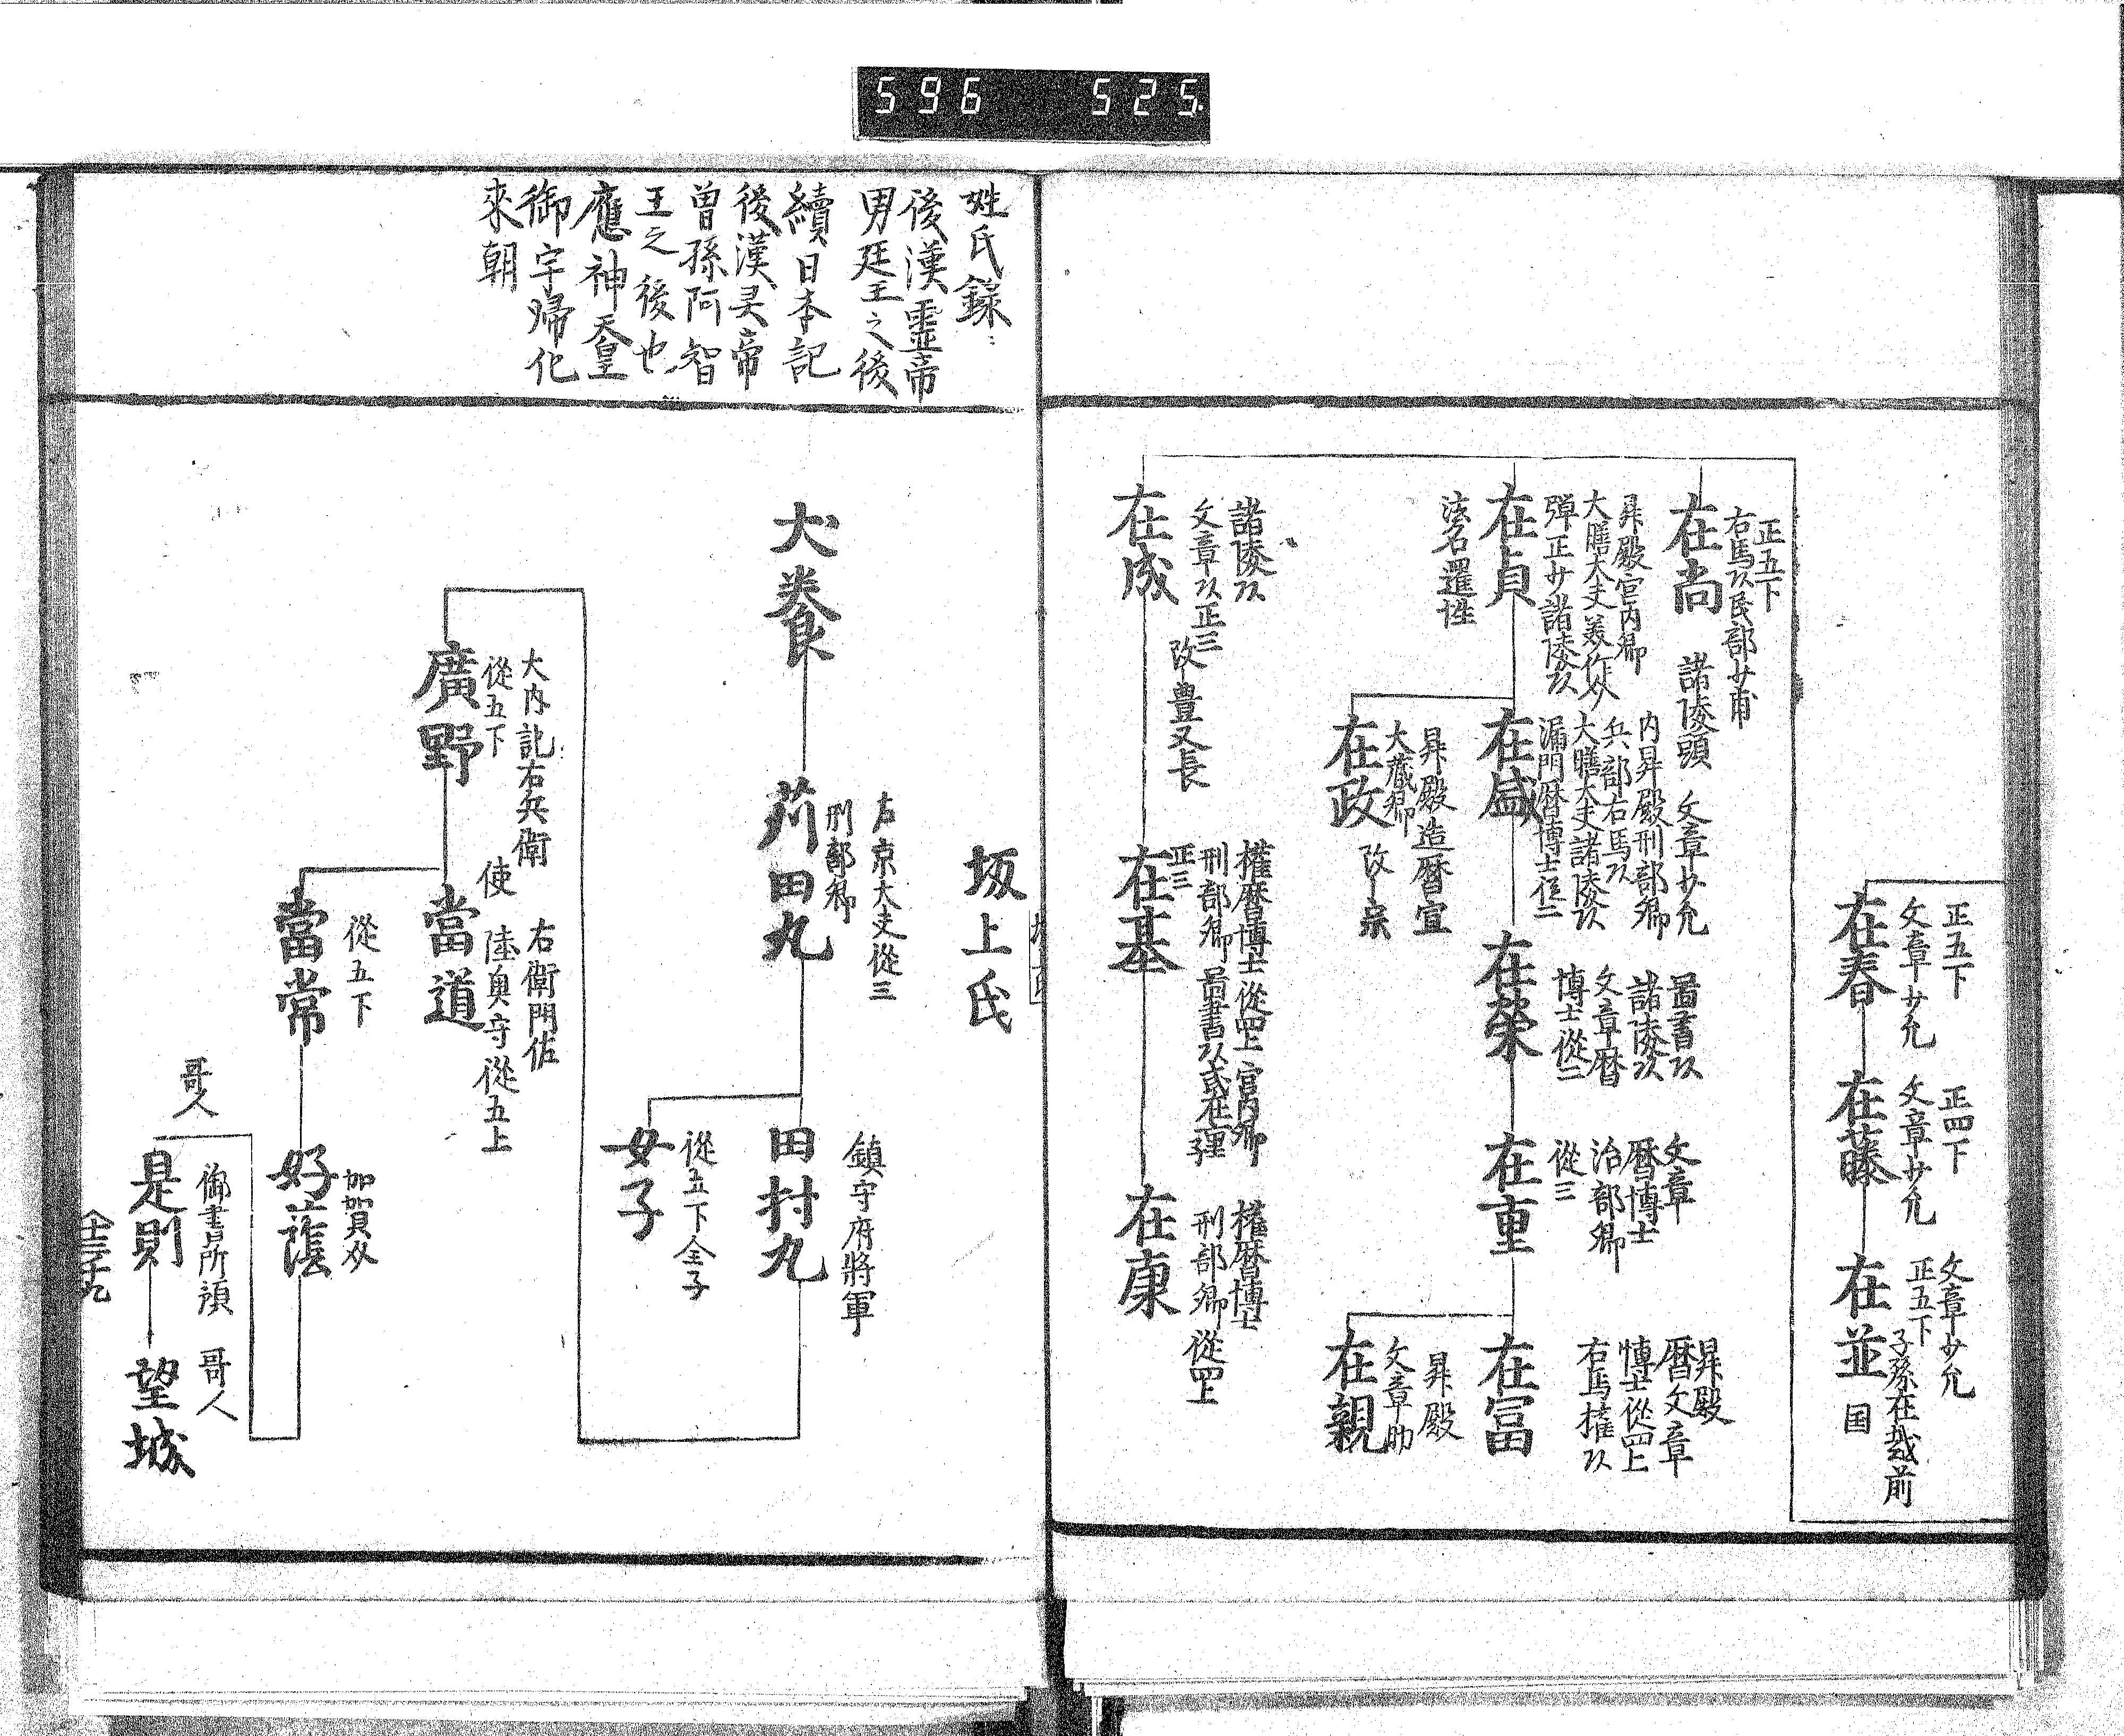 596 525
正五下
文章少允
在春
正四下
文章少允
在藤
文章少允
正五下
子孫在越前
国
在並
正五下
右馬以民部少甫
在尚
諸陵頭
文章少允
昇殿宮内卿
大膳大夫美作
弾正少諸陵以
在貞
法名暹性
内昇殿刑部卿
兵部右馬以
大膳大夫諸陵以
漏門暦博士従二
在盛
昇殿造暦宣
大蔵卿
改宗
在政
啚書以
諸陵以
文章暦
博士従二
在榮
文章
暦博士
治部卿
従三
在重
昇殿
暦文章
博士従四上
右馬権以
在冨
昇殿
文章助
在親
諸陵以
文章以正三
改豊又長
在成
權暦博士従四上宮内卿
刑部卿啚書以或在理
正三
在基
権暦博士
刑部卿従四上
在康
姓氏録
後漢靈帝
男延王之後
續日本記
後漢灵帝
曽孫阿智
王之後也
應神天皇
御宇帰化
來朝
坂上氏
犬養
左京大夫従三
刑部卿
苅田丸
鎮守府將軍
田村丸
従五下全子
女子
大内記右兵衛
従五下
使
廣野
右衛門佐
陸奥守従五上
當道
従五下
當常
加賀介
好蔭
哥人
御書所預
是則
哥人
望城